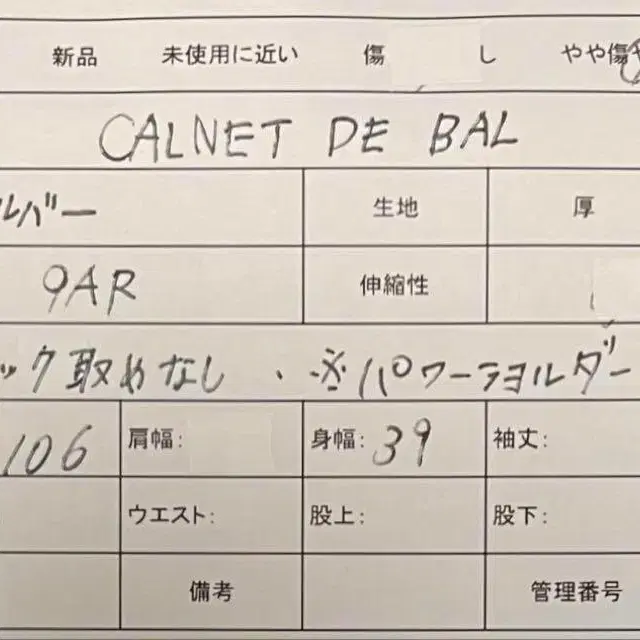 新品 未使用に近い 傷 し やや傷
CALNET DE BAL
ルバー 生地 厚
9AR 伸縮性
ック取めなし ・※パワーショルダー
106 肩幅: 身幅: 39 袖丈:
ウエスト: 股上: 股下:
備考 管理番号